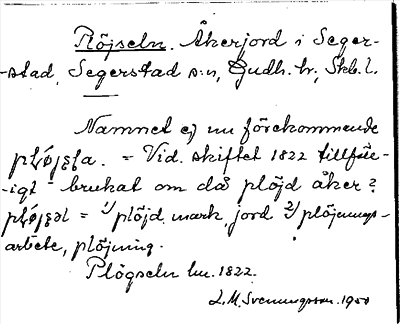 Plöjseln. Åkerjord i Seger-
-stad, Segerstad s:n, Gudh. hr; Skb. l.
Namnet ej nu förekommande
= Vid. skiftet 1822 tillfäl-
-igt brukat om då plöjd åker?
= 1/ plöjd mark, jord 2/ plöjnings-
arbete, plöjning.
Plögseln lm. 1822.
L. M. Svenungsson. 1950